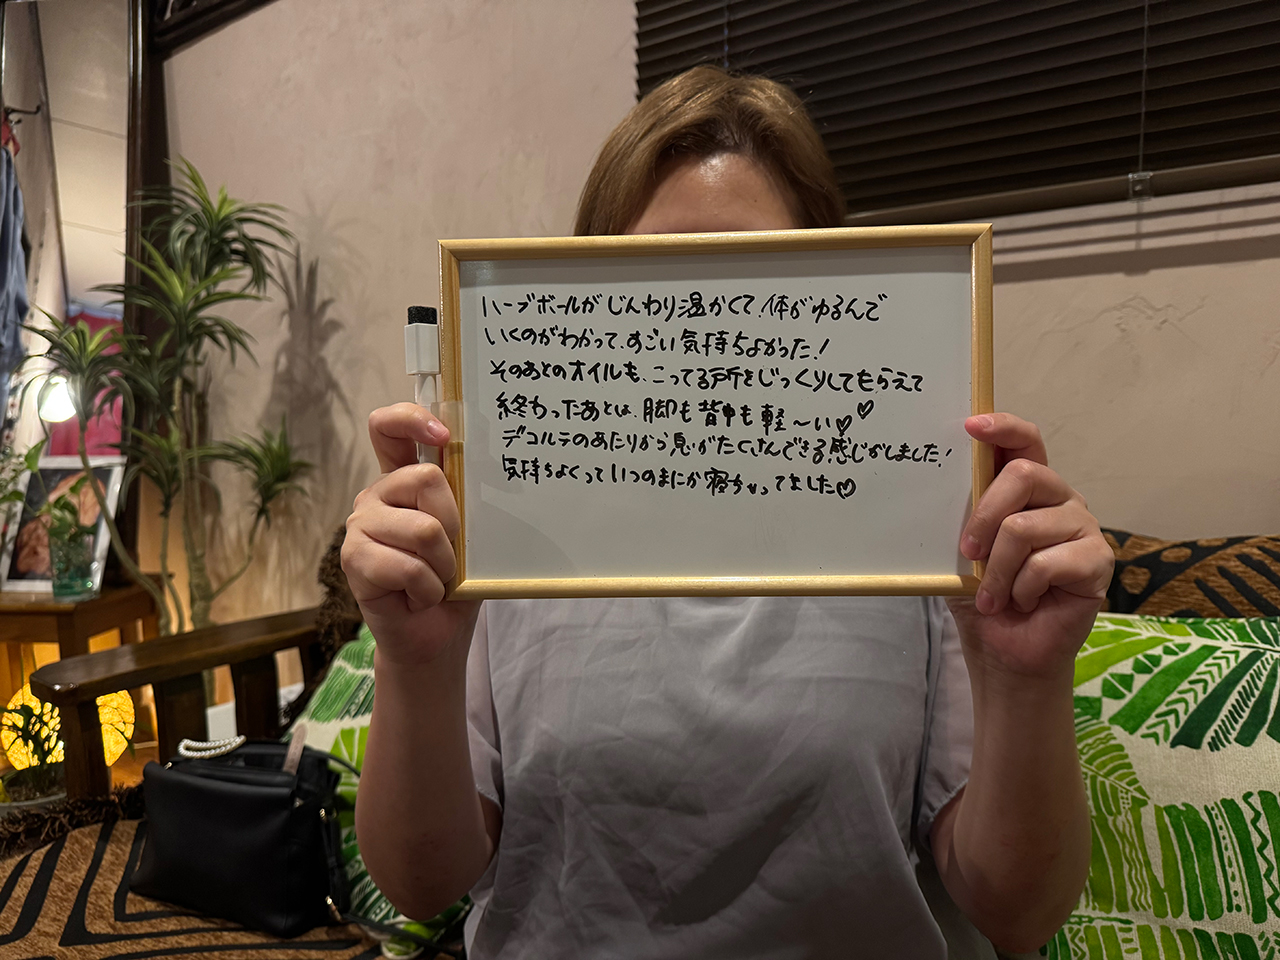 ハーブボールがじんわり温かくて、体がゆるんで
いくのがわかって、すごい気持ちよかった!
そのあとのオイルも、こってる所をじっくりしてもらえて
終わったあとは、脚も背中も軽〜い♡♡
デコルテのあたりから息がたくさんできる感じがしました!
気持ちよくっていつのまにか寝ちゃってました♡